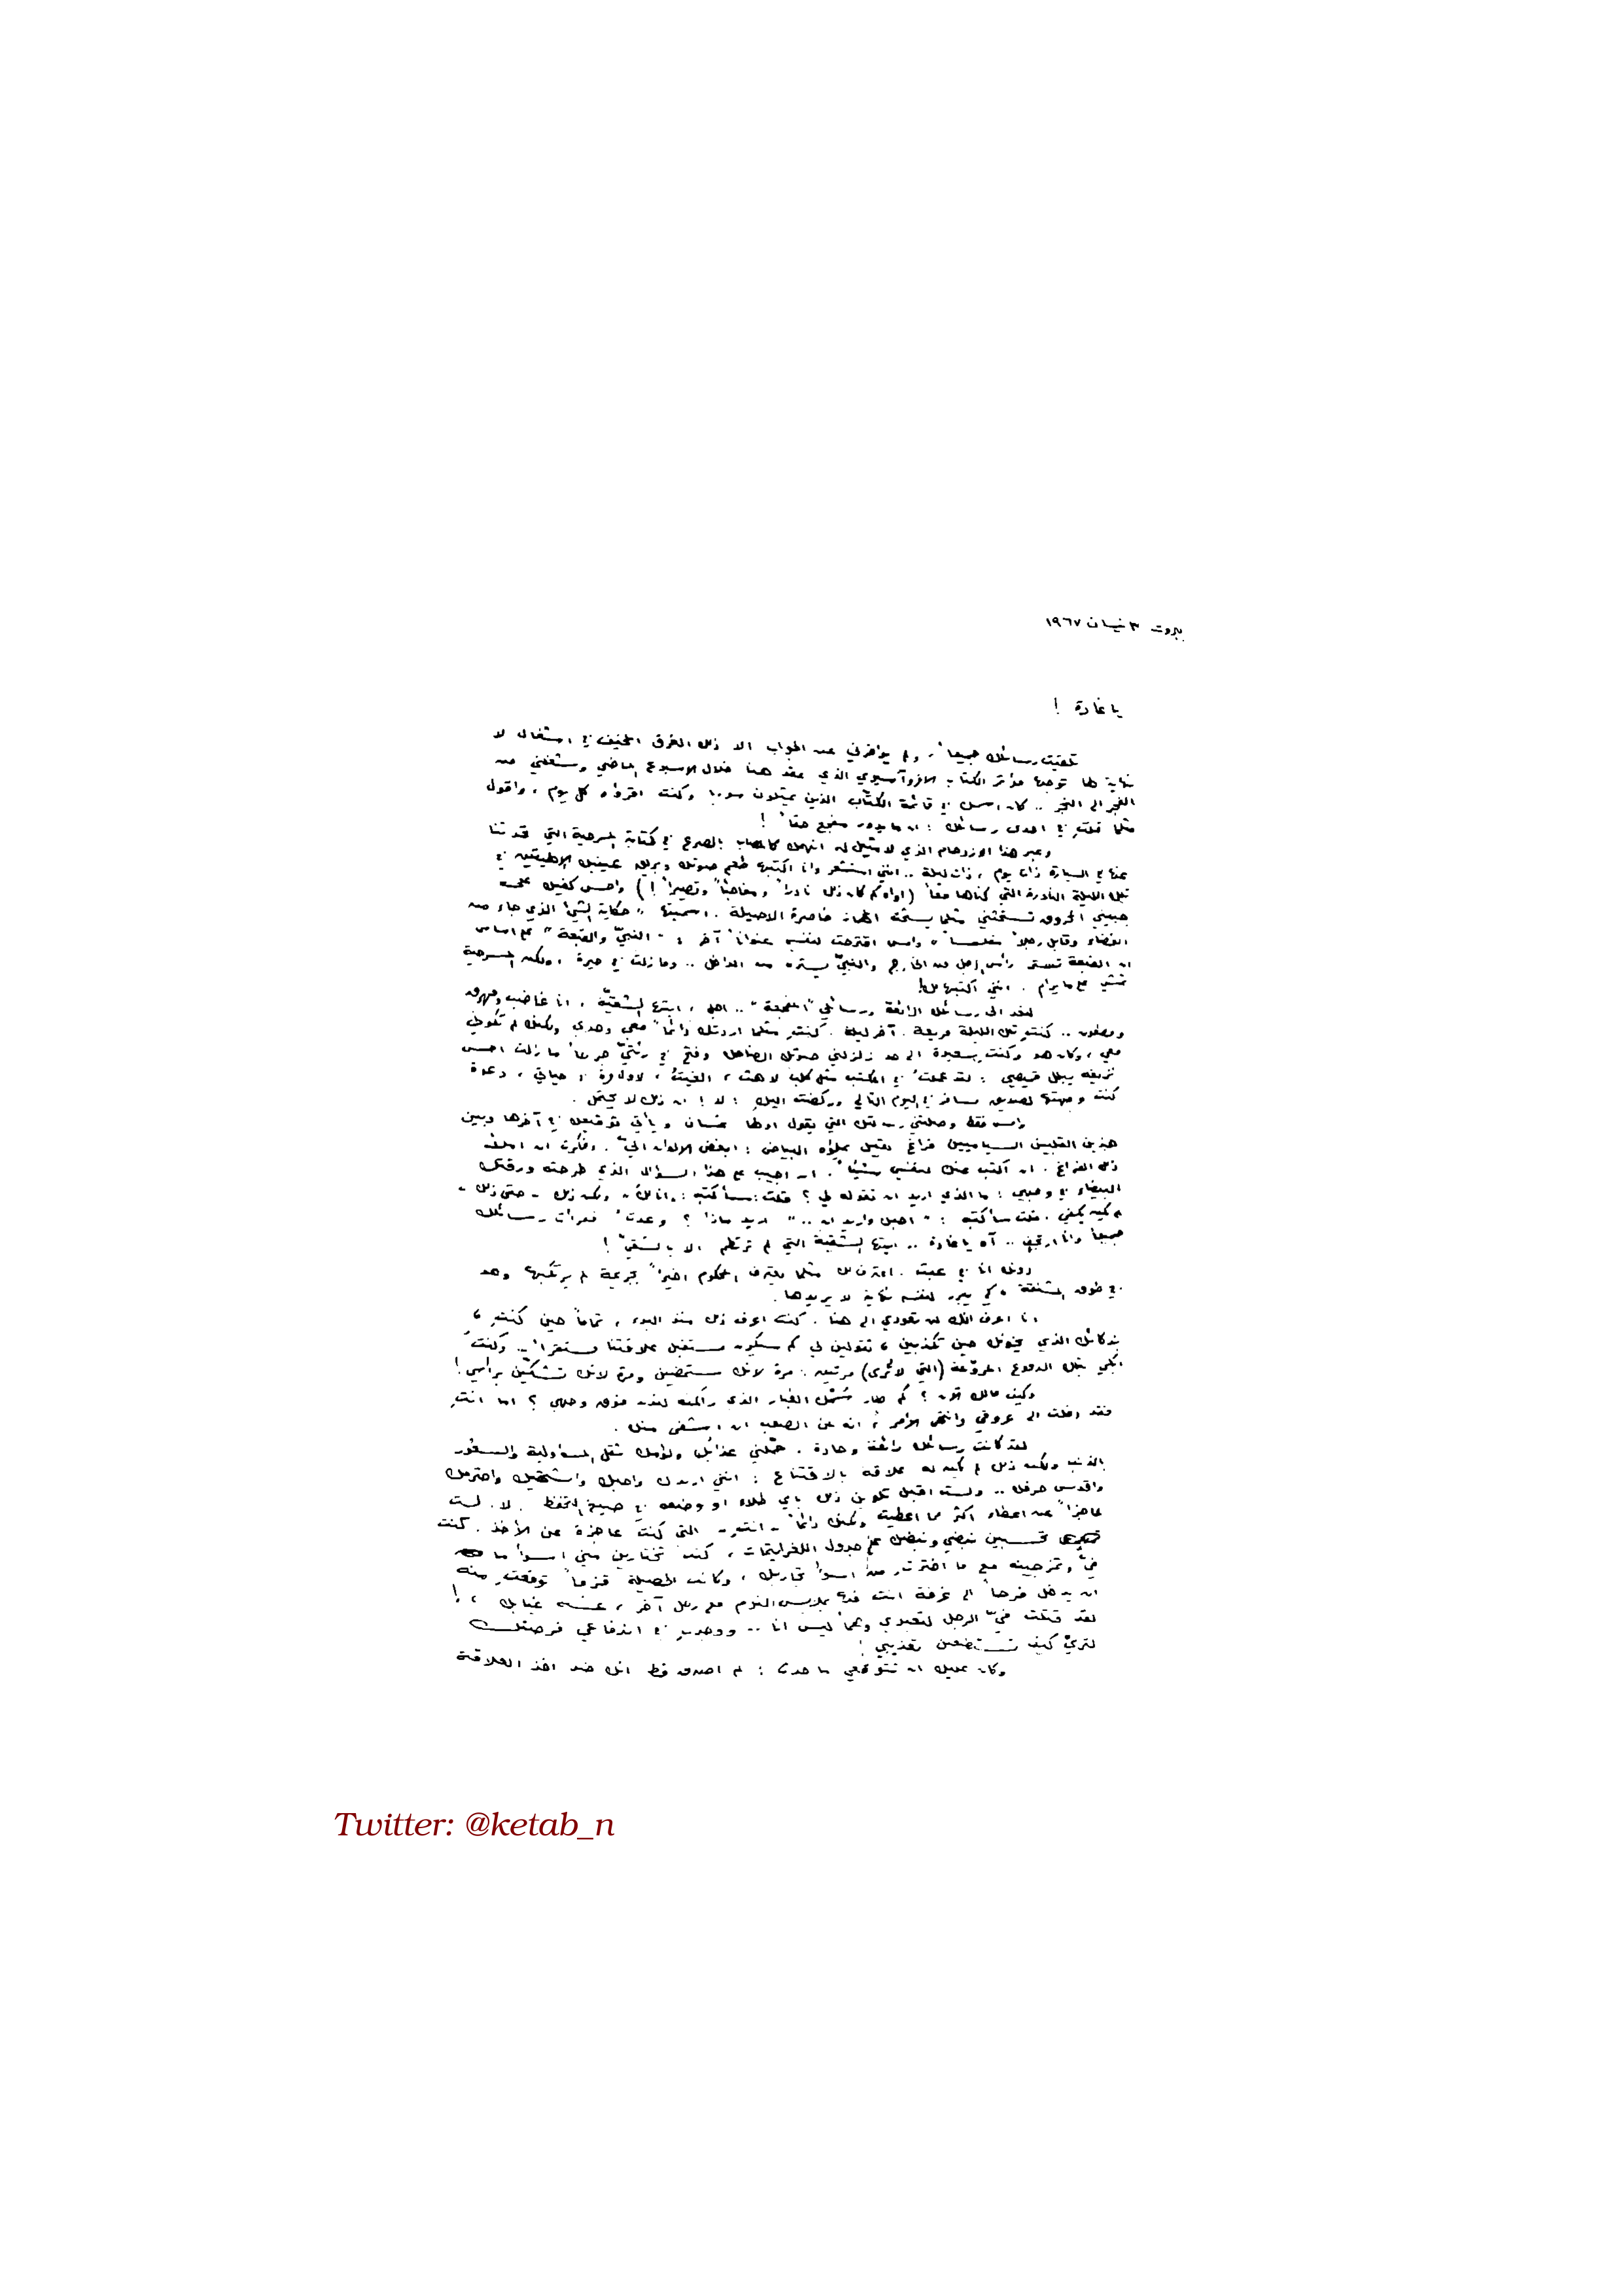 بيروت ٣ نيسان ١٩٦٧
يا غادة !
تلقيت رسائلك جميعاً، ولم يؤخرني عن الجواب الا ذلك الغرق المخيف في اشغال لا
نهاية لها توجها مؤتمر الكتاب الافروآسيوي الذي عقد هنا خلال الاسبوع الماضي وشغلني من
الفجر الى الفجر .. كان اسمك في قائمة الكتّاب الذين يمثلون سوريا وكنت اقرؤه كل يوم ، واقول
مثلما قلت في احدى رسائلك : ان ما يدور مفجع حقاً !
وعبر هذا الازدحام الذي لا مثيل له انهمك كالمصاب بالصرع في كتابة المسرحية التي تحدثنا
عنها في السيارة ذات يوم ، ذات ليلة .. انني استشعر وانا اكتبها طعم صوتك وبريق عينيك الإلهيتين في
تلك الليلة النادرة التي كناها معاً (اواه كم كان ذلك نادراً ومفاجئاً وقصيراً !) واحس كفيك على
جبيني المحروق تستحثني مثلما يستحث المهماز خاصرة الاصيلة . اسميتها " حكاية الشيء الذي جاء من
الفضاء وقابل رجلاً مفلساً " وامس اقترحت لنفسي عنواناً آخر : " النبيّ والقبعة " على اساس
ان القبعة تستر رأس الرجل من الخارج والنبيّ يستره من الداخل .. وما زلت في حيرة ، ولكن المسرحية
تمشي على ما يرام . انني اكتبها لك!
لنعد الى رسائلك الرائعة ورسائلي "المفجعة" .. اجل ، ايتها الشقيّة ، انا غاضب ومهروق
ومطعون .. كنتِ تلك الليلة مريعة . آخر ليلة . كنتِ مثلما اردتك دائماً معي وحدي ولكنك لم تكوني
معي ، وكان هو وكنت سعيدة الى حد زلزلني صوتك الضاحك وفتح في رئتيّ جرحاً ما زلت احس
نزيفه يبلل قميصي : لقد عملتُ في المكتب مثل كلب لاهث ، الغيتُ ، لأول مرة في حياتي ، دعوة
كنت وجهتها لصديق مسافر في اليوم التالي وركضت اليكِ : لا ! ان ذلك لا يحتمل .
وامس فقط وصلتني رسالتك التي يقول اولها غسان ويأتي توقيعك في آخرها وبين
هذين القلبين السياميين فراغ يقيل يملؤه البياض : ابغض الالوان اليّ . وفكرت ان املأ
ذلك الفراغ . ان اكتب عنك لنفسي شيئاً . ان اجيب على هذا السؤال الذي طرحته ورقتك
البيضاء في وجهي : ما الذي اريد ان تقوله لي ؟ قلت: سأكتب : "انا لكَ" ولكن ذلك - حتى ذلك -
لم يكن يكفي . قلت سأكتب : " احبك واريد ان .. " اريد ماذا ؟ وعدتُ فقرأت رسائلك
جميعاً وانا ارتجف .. آه يا غادة .. ايتها الشقية التي لم ترتطم الا بالشقيّ !
دونك انا في عبث . اعترف لك مثلما يعترف المحكوم اخيراً بجريمة لم يرتكبها وهو
في طوق المشنقة ، كي يبرر لنفسه نهاية لا يريدها .
انا اعرف انكِ لن تعودي الى هنا . كنت اعرف ذلك منذ البدء ، تماماً حين كنتِ ،
بذكائك الذي يخونك حين تكذبين ، تقولين لي كم سيكون مستقبل علاقتنا مستقراً .. وكنتُ
ابكي بتلك الدموع المروّعة (التي لا تُرى) مرتين : مرة لانك ستمضين ومرة لانك تشكّين برأسي!
وكيف حالك الآن ؟ كم صار سُمك الغبار الذي راكمته لندن فوق وجهي ؟ اما انتِ
فقد دخلت الى عروقي وانتهى الأمر ، انه من الصعب ان اشفى منك .
لقد كانت رسائلك رائعة وحادة . حمّلني عذابُك ولؤمك ثقل المسؤولية والشعور
بالذنب ولكن ذلك لم يكن له علاقة بالاقتناع : انني اريدك واحبك واشتهيك واحترمك
واقدس حرفك .. ولست اقبل تلوين ذلك بأي طلاء او وضعه في صيغ التحفظ . لا. لست
عاجزاً عن اعطاء اكثر مما اعطيت ولكنك دائماً - انتِ - التي كنتِ عاجزة عن الأخذ . كنت
تحسبين نبضي ونبضك على جدول اللغرليتمات ، كنت تختارين مني اسوأ ما
فيّ وتمزجينه مع ما اخترت من اسوأ تجاربك ، وكانت الحصيلة قزماً توقعتِ منه
ان يدخل فرحاً الى غرفة انت فيها بملابس النوم مع رجل آخر ، عشيه غيابك ، !
لقد قتلت فيّ الرجل لتعبدي وهماً ليس انا .. ووجدتِ في اندفاعي فرصتك
لتريْ كيف تستطيعين تعذيبي !
وكان عليك ان تتوقعي ما حدث : لم اصدق قط انك ضد اخذ العلاقة
Twitter: @ketab_n